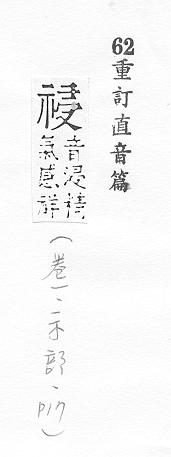 62重訂直音篇
祲
音浸精
氣感祥
(卷一、示部、P17)